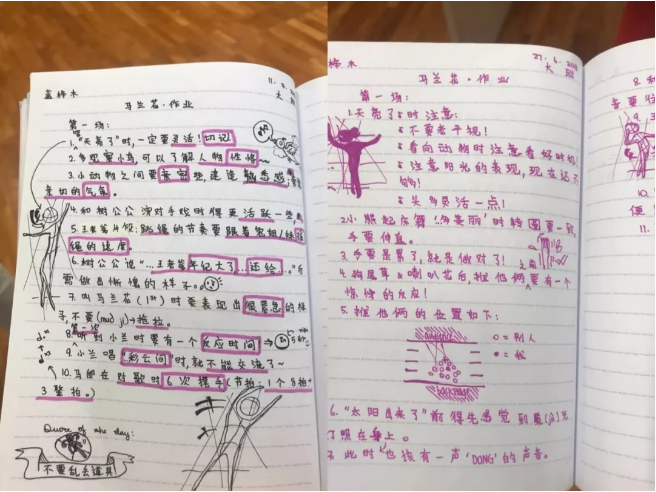 蓝梓木
11.
大班
马兰花·作业
第一场:
1. "天亮了"时,一定要灵活!切记
2. 多观察小鸟可以了解人物性情~
3. 小动物之间要亲密些,建造熟悉感,
亲切的气氛。
4. 和树公公演对手戏时得更活跃一些
5. 跳绳的节奏要跟着
绳的速度
6. 树公公说"...王老爹年纪大了...还给..."后
需做出惭愧的样子
7. 叫马兰花(1st)时要表现出很着急的样
子,不要
8. 听到小兰时要有一个反应时间 →
9. 小兰唱"彩云间"时,就不能交流了~
10. 马郎在对歌时6次摆手(节拍:1个8拍+
3整拍。)
Quote of the day:
不要乱丢道具
27.6.
大班
梓木
马兰花·作业
第一场:
1. 天亮了时注意:
不要老平视!
看向动物时注意看好时机
注意阳光的表现,现在还不
够!
头多灵活一点!
2. 小熊起床舞"多美丽"时转圆要一致,
手要伸直。
3. 手要是累了,就是做对了!
4. 狗尾草&喇叭花后,猴他俩要有一个
惊愕的反应!
5. 猴他俩的位置如下:
o = 别人
= 猴
backstage
6. "太阳出来了"前得先感觉到
了照在身上。
7. 此时也该有一声'DONG'的声音。